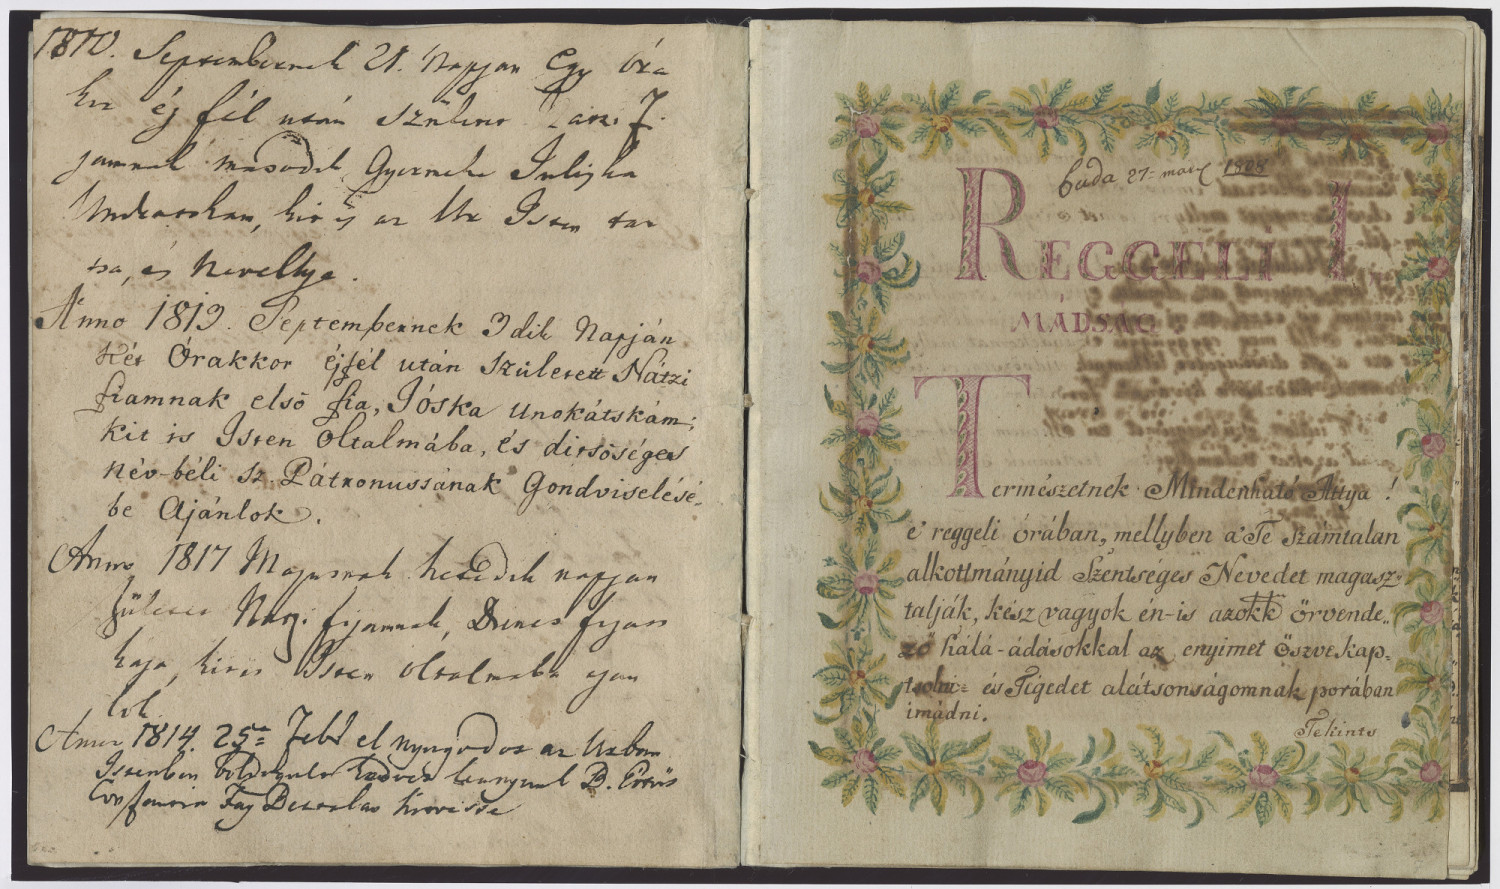 1810. Septembernek 21. Napjan Egy óra
kor éj fél után szüleno Lasz. F.
jamnak masodik Gyermeke Juliska
Unokatskam, kit is az Ur Isten tar
tsa, és Nevellye.
Anno 1813. Septembernek 3dik Napján
Két Órakkor éjfél után született Nátzi
fiamnak elsö fia, Jóska unokátskám;
kit is Isten Oltalmába, és ditsöséges
név-béli Sz. Pátronussának Gondviselésé-
be Ajánlok.
Anno 1817 Majusnak hetedik napjan
Sületet Natzi fijamnak, Dienes fijats
kaja, kitis Isten oltalmaba ajan
lok
Anno 1814. 25a Febr el nyugodot az Urban
Istenben boldogult kedves leanyunk B. Eötvös
Fay Borbala
Buda 27= març 1808
REGGELI I
MÁDSÁG
Természetnek Mindenható Attya!
e' reggeli órában, mellyben a' Te számtalan
alkottmányid Szentséges Nevedet magasz-
talják, kész vagyok én-is azokk örvende„
zö hálá-ádásokkal az enyimet öszve kap-
tsolni= és Tégedet alátsonságomnak porában
imádni.
Tekints